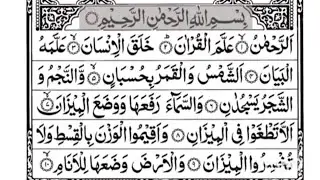 بِسْمِ اللّٰهِ الرَّحْمٰنِ الرَّحِيْمِ
اَلرَّحْمٰنُ ۙ﴿۱﴾ عَلَّمَ الْقُرْاٰنَ ؕ﴿۲﴾ خَلَقَ الْاِنْسَانَ ۙ﴿۳﴾ عَلَّمَهُ
الْبَيَانَ ﴿۴﴾ اَلشَّمْسُ وَ الْقَمَرُ بِحُسْبَانٍ ﴿۵﴾ وَّ النَّجْمُ وَ
الشَّجَرُ يَسْجُدٰنِ ﴿۶﴾ وَ السَّمَآءَ رَفَعَهَا وَ وَضَعَ الْمِيْزَانَ ۙ﴿۷﴾
اَلَّا تَطْغَوْا فِى الْمِيْزَانِ ﴿۸﴾ وَ اَقِيْمُوا الْوَزْنَ بِالْقِسْطِ وَ لَا
تُخْسِرُوا الْمِيْزَانَ ﴿۹﴾ وَ الْاَرْضَ وَضَعَهَا لِلْاَنَامِ ۙ﴿۱۰﴾